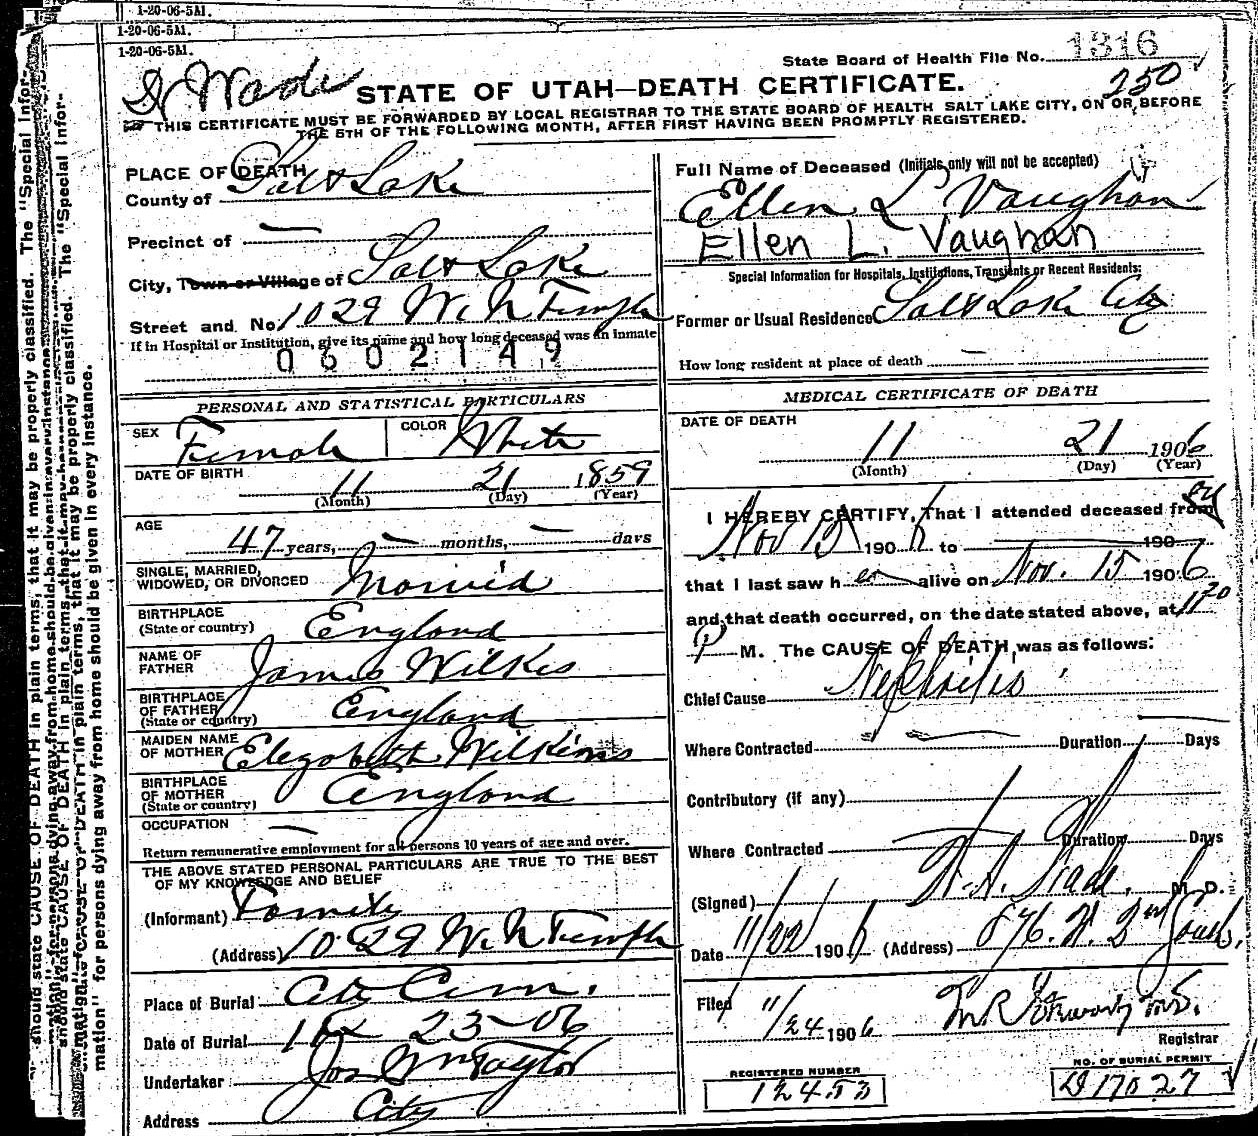 1-20-06-5A1.
1-20-06-5A1.
1-20-06-5A1.
State Board of Health File No. 1316
Wade
250
STATE OF UTAH—DEATH CERTIFICATE.
THIS CERTIFICATE MUST BE FORWARDED BY LOCAL REGISTRAR TO THE STATE BOARD OF HEALTH SALT LAKE CITY, ON OR BEFORE
THE 5TH OF THE FOLLOWING MONTH, AFTER FIRST HAVING BEEN PROMPTLY REGISTERED.
PLACE OF DEATH
County of Salt Lake
Precinct of —
City, Town or Village of Salt Lake
Street and No. 1029 W. N Temple
If in Hospital or Institution, give its name and how long deceased was an inmate
0602149
Full Name of Deceased (Initials only will not be accepted)
Ellen L Vaughan
Ellen L. Vaughan
Special Information for Hospitals, Institutions, Transients or Recent Residents:
Former or Usual Residence Salt Lake City
How long resident at place of death —
PERSONAL AND STATISTICAL PARTICULARS
SEX Female COLOR White
DATE OF BIRTH
11 21 1859
(Month) (Day) (Year)
AGE
47 years, — months, — days
SINGLE, MARRIED,
WIDOWED, OR DIVORCED Married
BIRTHPLACE
(State or country) England
NAME OF
FATHER James Wilkes
BIRTHPLACE
OF FATHER
(State or country) England
MAIDEN NAME
OF MOTHER Elezabeth Wilkins
BIRTHPLACE
OF MOTHER
(State or country) England
OCCUPATION —
Return remunerative employment for all persons 10 years of age and over.
THE ABOVE STATED PERSONAL PARTICULARS ARE TRUE TO THE BEST
OF MY KNOWLEDGE AND BELIEF
(Informant) Family
(Address) 1029 W. N Temple
Place of Burial City Cem.
Date of Burial 11 23-06
Undertaker Jos Wm Taylor
Address City
MEDICAL CERTIFICATE OF DEATH
DATE OF DEATH
11 21 1906
(Month) (Day) (Year)
I HEREBY CERTIFY, That I attended deceased from
Nov 15 1906 to 190
that I last saw her alive on Nov. 15 1906
and that death occurred, on the date stated above, at
P M. The CAUSE OF DEATH was as follows:
Chief Cause Nephritis
Where Contracted Duration Days
Contributory (if any)
Where Contracted Duration Days
(Signed) Wade. M. D.
Date 11/22/ 1906 (Address) 876. W. 2nd South.
Filed 11/24 1906
Registrar
REGISTERED NUMBER
12453
NO. OF BURIAL PERMIT
D17027
should state CAUSE OF DEATH in plain terms, that it may be properly classified. The "Special Infor-
mation" for persons dying away from home should be given in every instance.